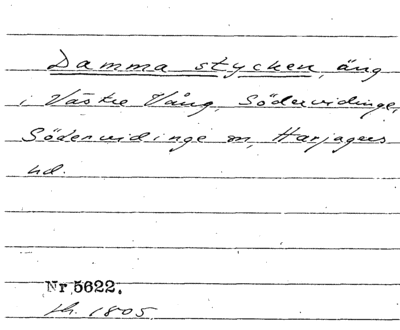 Damma stycken, äng
i Västre Vång, Södervidinge,
Södervidinge sn, Harjagers
hd.
Nr 5622.
1805